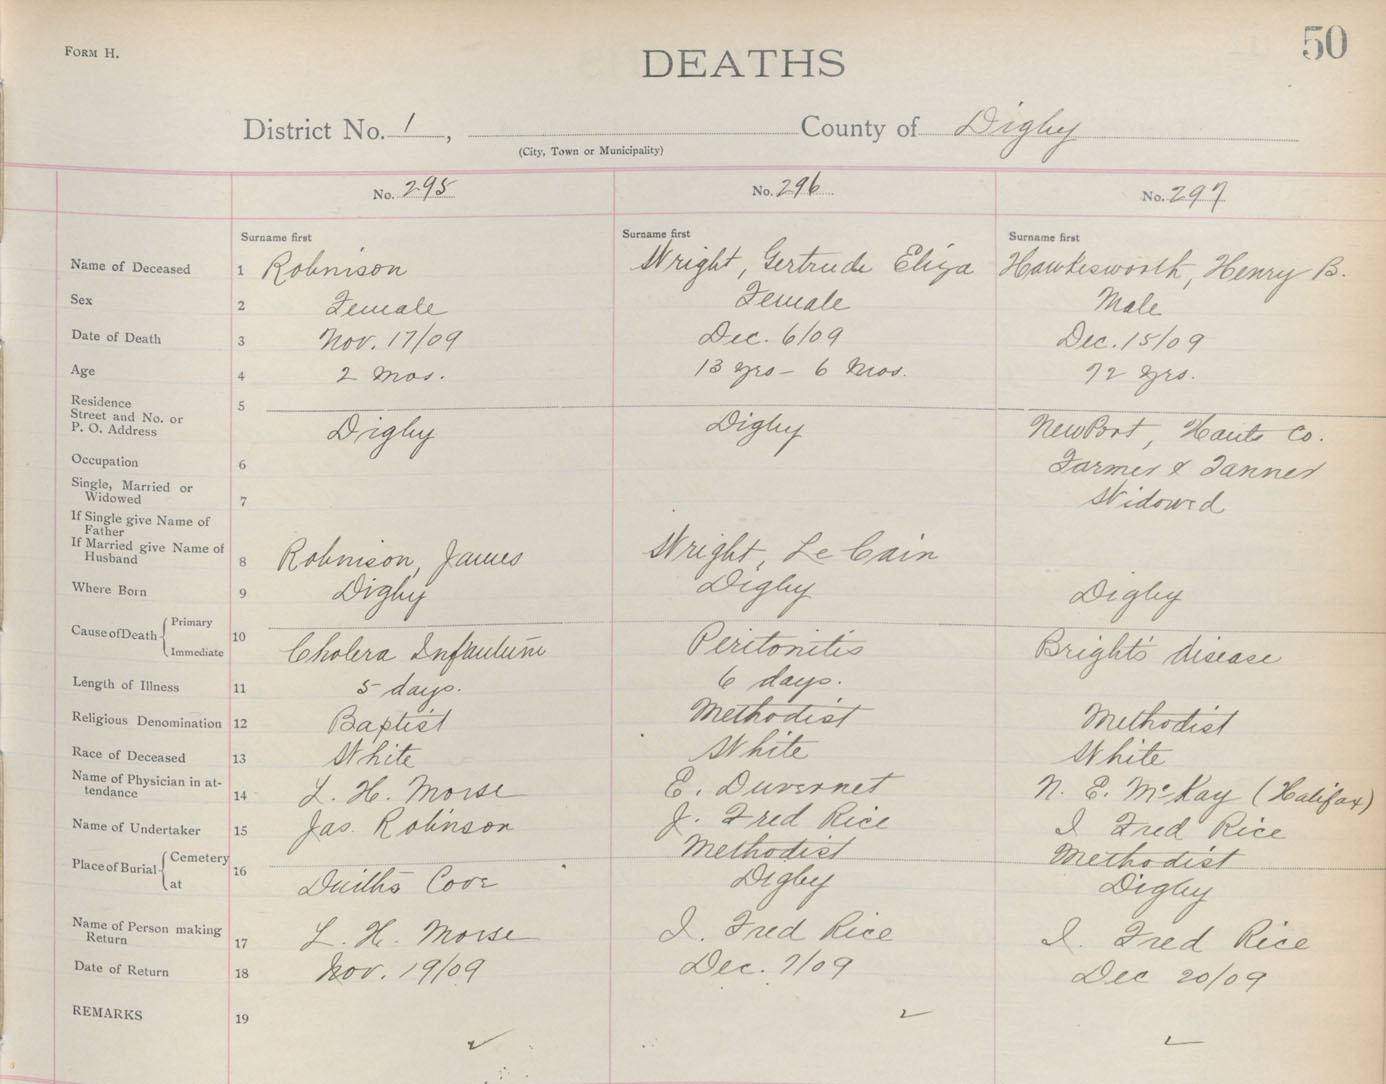 FORM H.
50
DEATHS
District No. 1, County of Digby
(City, Town or Municipality)
No. 295 No. 296 No. 297
Surname first Surname first Surname first
Name of Deceased 1 Robinson Wright, Gertrude Eliza Hawkesworth, Henry B.
Sex 2 Female Female Male
Date of Death 3 Nov. 17/09 Dec. 6/09 Dec. 15/09
Age 4 2 mos. 13 yrs - 6 mos. 72 yrs.
Residence 5
Street and No. or
P. O. Address Digby Digby NewPort, Hants Co.
Occupation 6 Farmer & Tanner
Single, Married or
Widowed 7 Widowed
If Single give Name of
Father
If Married give Name of
Husband 8 Robinson, James Wright, Le Cain
Where Born 9 Digby Digby Digby
Cause of Death Primary 10
Immediate Cholera Infantum Peritonitis Bright's disease
Length of Illness 11 5 days. 6 days.
Religious Denomination 12 Baptist Methodist Methodist
Race of Deceased 13 White White White
Name of Physician in at-
tendance 14 L. H. Morse E. Duvernet N. E. McKay (Halifax)
Name of Undertaker 15 Jas. Robinson J. Fred Rice J Fred Rice
Place of Burial Cemetery 16 Methodist Methodist
at Cove Digby Digby
Name of Person making
Return 17 L. H. Morse J. Fred Rice J. Fred Rice
Date of Return 18 Nov. 19/09 Dec. 7/09 Dec 20/09
REMARKS 19